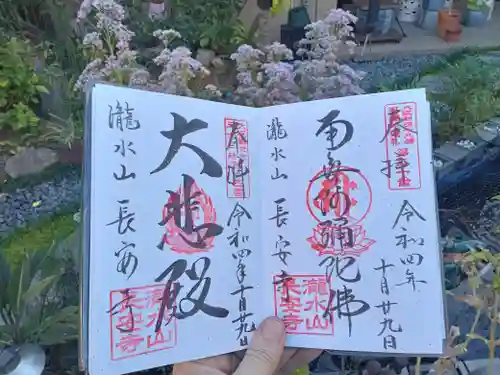 奉拝
令和四年十月廿九日
南無阿弥陀佛
瀧水山 長安寺
瀧水山
長安寺
奉拝
令和四年十月廿九日
大悲殿
瀧水山 長安寺
瀧水山
長安寺